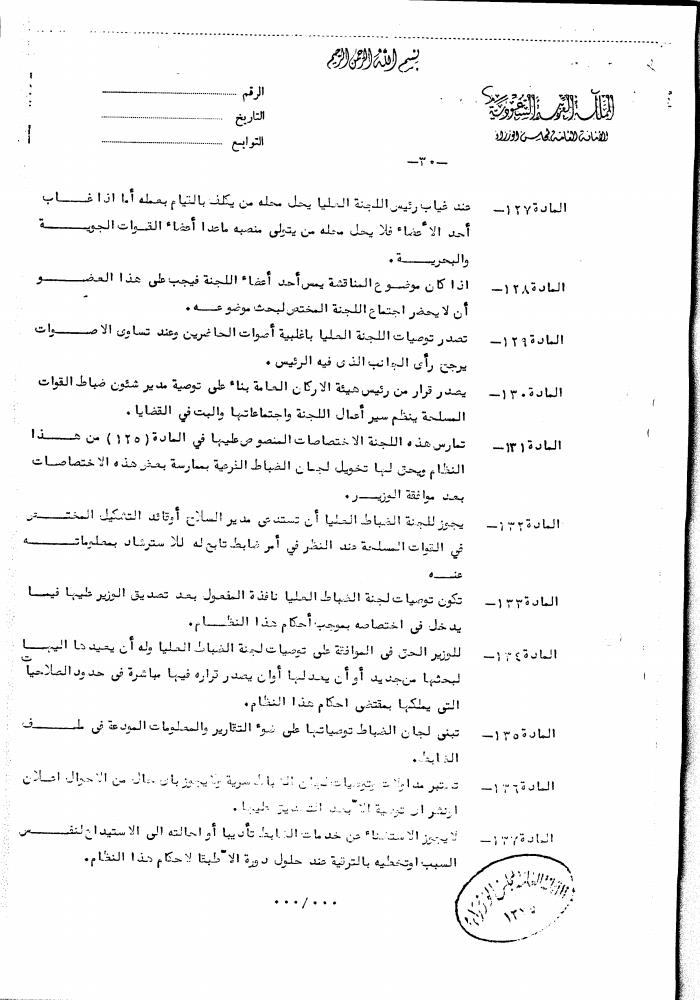 بسم الله الرحمن الرحيم
المملكة العربية السعودية
الأمانة العامة لمجلس الوزراء
الرقم
التاريخ
التوابع
-٣٠-
المادة ١٢٧- عند غياب رئيس اللجنة العليا يحل محله من يكلف بالقيام بعمله أما اذا غــاب
أحد الأعضاء فلا يحل محله من يتولى منصبه ماعدا أعضاء القوات الجويـــة
والبحريــــة .
المادة ١٢٨- اذا كان موضوع المناقشة يمس أحد أعضاء اللجنة فيجب على هذا العضــو
أن لا يحضر اجتماع اللجنة المختص لبحث موضوعـــه .
المادة ١٢٩- تصدر توصيات اللجنة العليا باغلبية أصوات الحاضرين وعند تساوى الاصــوات
يرجح رأى الجانب الذى فيه الرئيس .
المادة ١٣٠- يصدر قرار من رئيس هيئة الاركان العامة بناء على توصية مدير شئون ضباط القوات
المسلحة ينظم سير أعمال اللجنة واجتماعاتها والبت في القضايا .
المادة ١٣١- تمارس هذه اللجنة الاختصاصات المنصوص عليها في المادة (١٢٥) من هـــذا
النظام ويحق لها تخويل لجان الضباط الفرعية بممارسة بعض هذه الاختصاصات
بعد موافقة الوزيــر .
المادة ١٣٢- يجوز للجنة الضباط العليا أن تستدعى مدير السلاح أو قائد التشكيل المختــص
في القوات المسلحة عند النظر في أمر ضابط تابع له للاسترشاد بمعلوماتـــه
عنـــه
المادة ١٣٣- تكون توصيات لجنة الضباط العليا نافذة المفعول بعد تصديق الوزير عليها فيمــا
يدخل في اختصاصه بموجب أحكام هذا النظــام .
المادة ١٣٤- للوزير الحق في الموافقة على توصيات لجنة الضباط العليا وله أن يعيدها اليهــا
لبحثها من جديد أو أن يعدلها أو ان يصدر قراره فيها مباشرة في حدود الصلاحيات
التى يملكها بمقتضى احكام هذا النظام .
المادة ١٣٥- تبنى لجان الضباط توصياتها على ضوء التقارير والمعلومات المودعة في ملــف
الضابط .
المادة ١٣٦- تعتبر مداولات وتوصيات لجان الضباط سرية ولا يجوز باى حال من الاحوال اعلان
او نشر اى توصية الا بعد التصديق عليها .
المادة ١٣٧- لا يجوز الاستغناء عن خدمات الضابط تأديبا أو احالته الى الاستيداع لنفــس
السبب او تخطيه بالترقية عند حلول دوره الا طبقا لاحكام هذا النظام .
٠٠٠/٠٠٠
الأمانة العامة لمجلس الوزراء